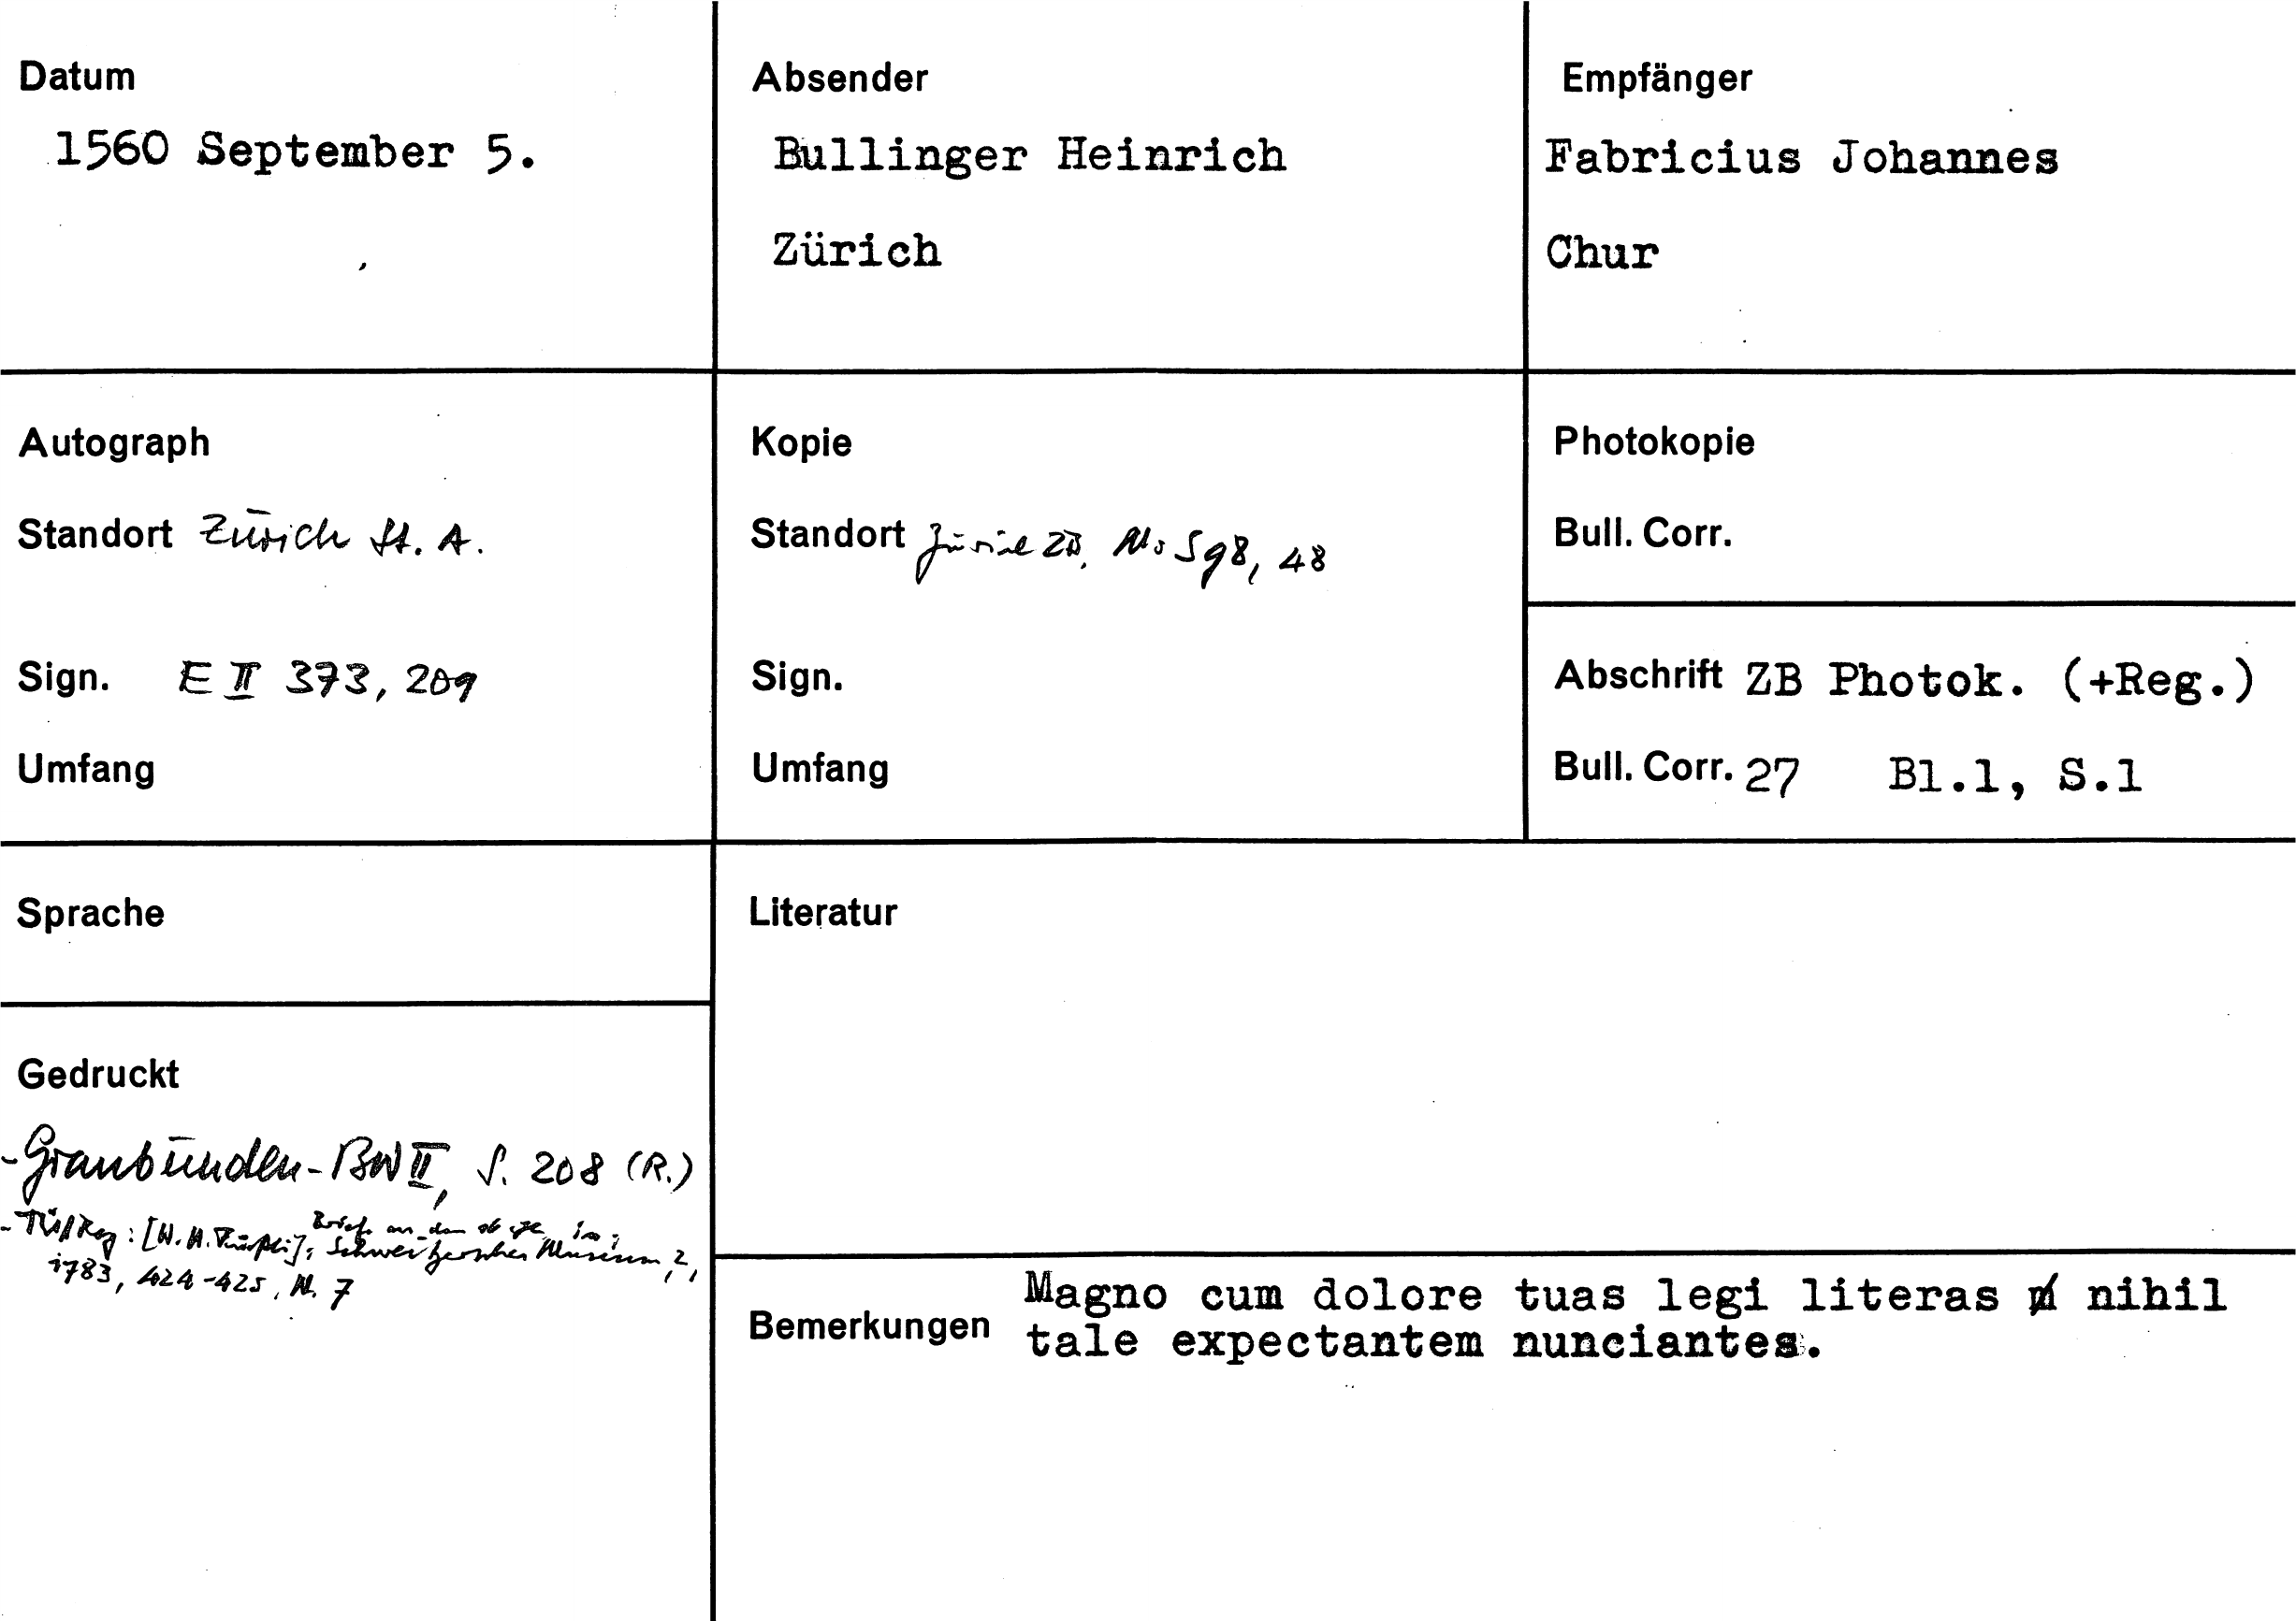 Datum
1560 September 5.
Absender
Bullinger Heinrich
Zürich
Empfänger
Fabricius Johannes
Chur
Autograph
Standort Zürich St. A.
Sign. E II 373, 209
Umfang
Kopie
Standort Zürich ZB, Ms S 98, 48
Sign.
Umfang
Photokopie
Bull. Corr.
Abschrift ZB Photok. (+Reg.)
Bull. Corr. 27 Bl.1, S.1
Sprache
Literatur
Gedruckt
- Graubünden-BW II, S. 208 (R.)
Briefe an den in:
- [W. H. Schweitzersches Museum, 2,
1783, 424-425, N. 7
Bemerkungen
Magno cum dolore tuas legi literas nihil
tale expectantem nunciantes.